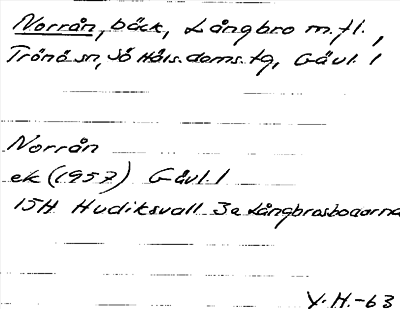 Norrån, bäck, Långbro m.fl.,
Trönö sn, Sö Häls. doms. tg, Gävl. l
Norrån
ek (1957) Gävl. l
15H Hudiksvall 3a Långbrosbodarna
Y.H.-63